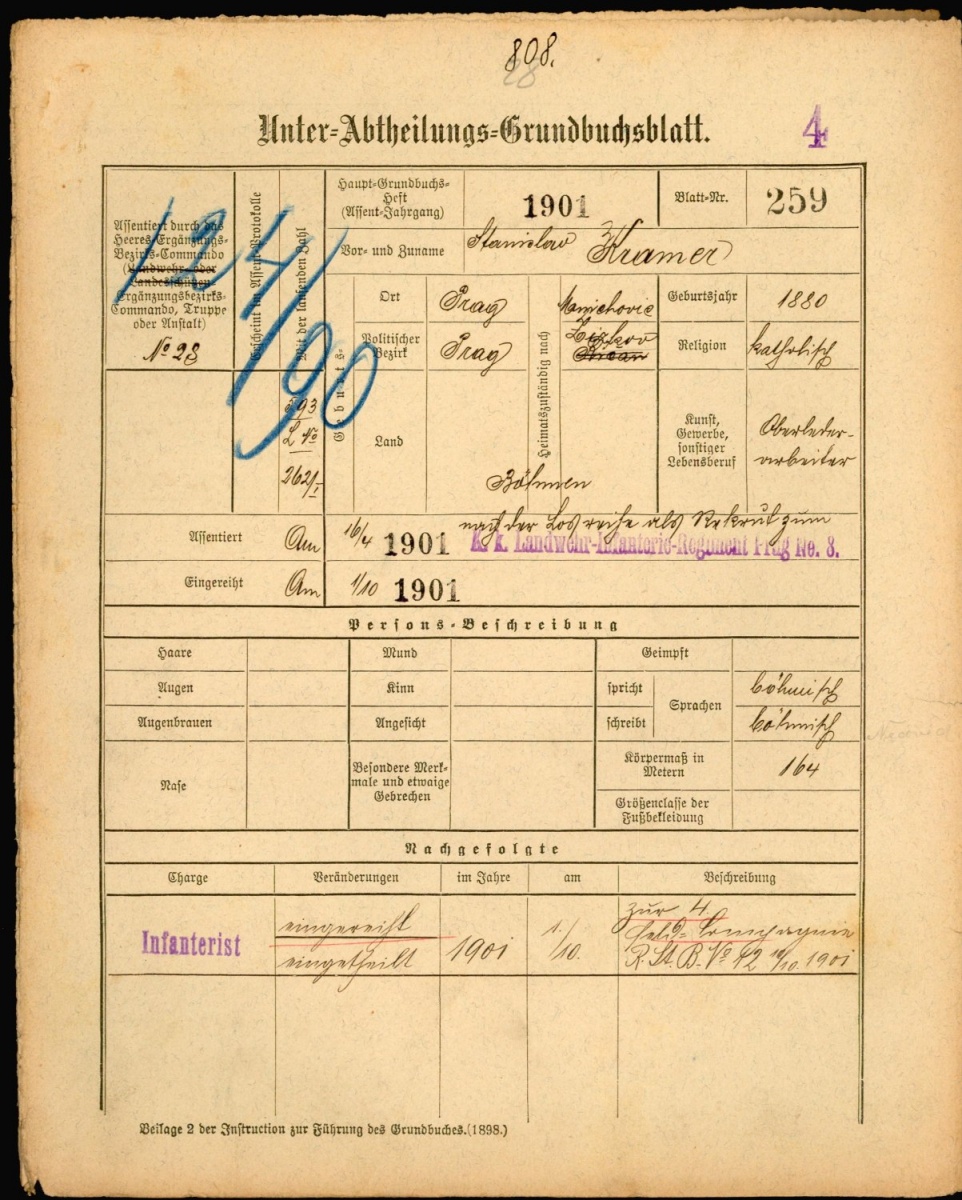 808.
28
Unter-Abtheilungs-Grundbuchsblatt.
4
Assentiert durch das
Heeres-Ergänzungs-
Bezirks-Commando
(Landwehr- oder
Landesschützen
Ergänzungsbezirks-
Commando, Truppe
oder Anstalt)
No 28
Erscheint im Assent-Protokolle
Mit der laufenden Zahl
124/90
293
L No
262/I
Haupt-Grundbuchs-
Heft
(Assent-Jahrgang)
1901
Blatt-Nr.
259
Vor- und Zuname
Stanislav Kramer
Geburts-
Ort
Prag
Politischer
Bezirk
Prag
Land
Böhmen
Heimatszuständig nach
Mnichovic
Žižkov
Říčan
Geburtsjahr
1880
Religion
katholisch
Kunst,
Gewerbe,
sonstiger
Lebensberuf
Oberleder-
arbeiter
Assentiert
Am
16/4 1901
nach der Losreihe als Rekrut zum
K. k. Landwehr-Infanterie-Regiment Prag No. 8.
Eingereiht
Am
1/10 1901
Persons-Beschreibung
Haare
Mund
Geimpft
Augen
Kinn
spricht
Sprachen
böhmisch
Augenbrauen
Angesicht
schreibt
böhmisch
Nase
Besondere Merk-
male und etwaige
Gebrechen
Körpermaß in
Metern
164
Größenclasse der
Fußbekleidung
Nachgefolgte
Charge
Veränderungen
im Jahre
am
Beschreibung
Infanterist
eingereiht
eingetheilt
1901
1./10.
zur 4.
Feld-Compagnie
R. St. B. No 42 10/10. 1901
Beilage 2 der Instruction zur Führung des Grundbuches. (1898.)